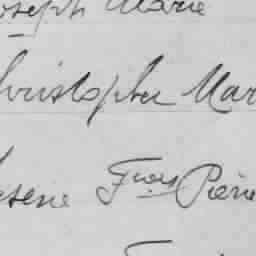 oseph Marie
hristopher Mar
esene Frçois Pierre